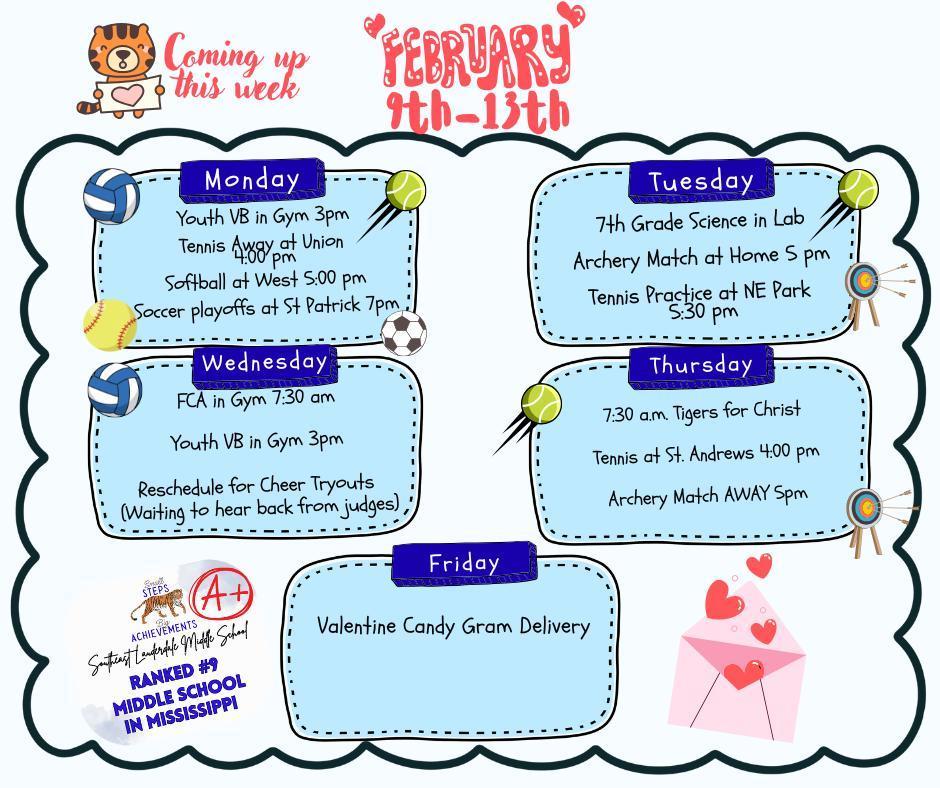 Coming up
this week
FEBRUARY
9th-13th
Monday
Youth VB in Gym 3pm
Tennis Away at Union
4:00 pm
Softball at West 5:00 pm
Soccer playoffs at St Patrick 7pm
Tuesday
7th Grade Science in Lab
Archery Match at Home 5 pm
Tennis Practice at NE Park
5:30 pm
Wednesday
FCA in Gym 7:30 am
Youth VB in Gym 3pm
Reschedule for Cheer Tryouts
(Waiting to hear back from judges)
Thursday
7:30 a.m. Tigers for Christ
Tennis at St. Andrews 4:00 pm
Archery Match AWAY 5pm
Friday
Valentine Candy Gram Delivery
Small
STEPS
Big
ACHIEVEMENTS
A+
Southeast Lauderdale Middle School
RANKED #9
MIDDLE SCHOOL
IN MISSISSIPPI